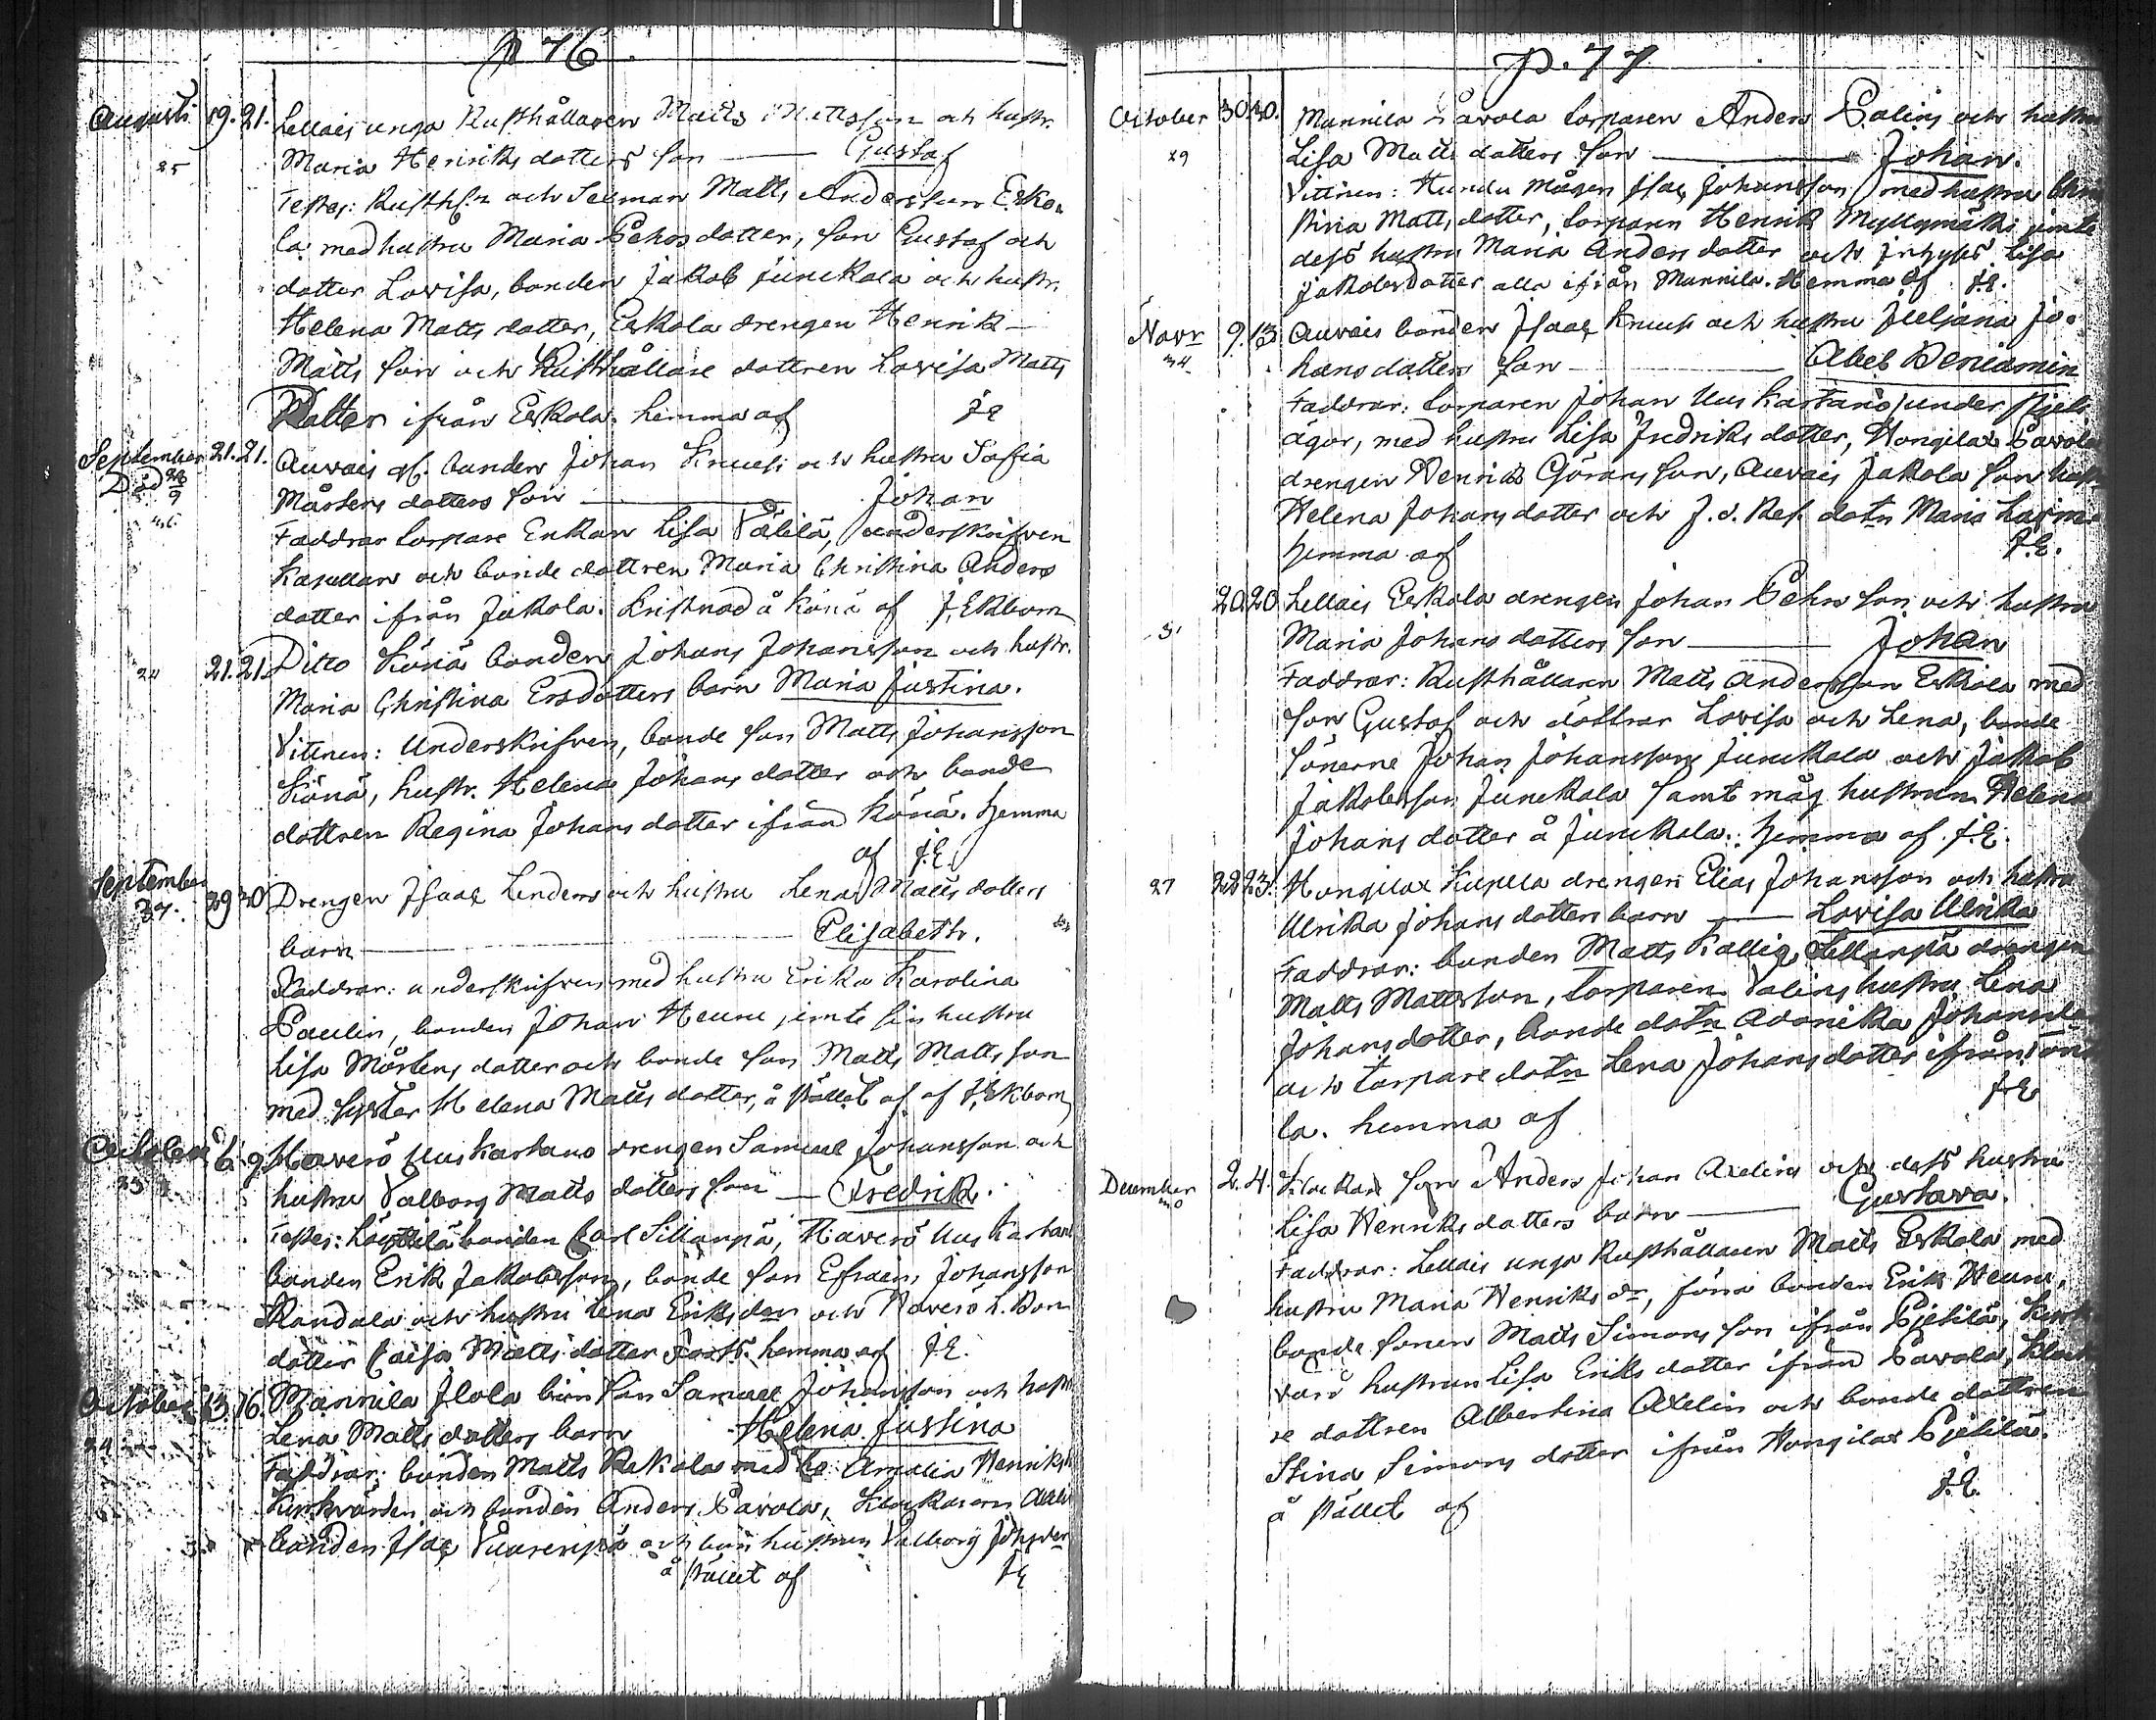 p 76.
Augusti 19. 21. Lellais unga Rusthållaren Matts Mattsson och hustr.
25 Maria Henriks dotters son — Gustaf
Testes: Rusthn och Sexman Matts Andersson Esko-
la med hustru Maria Pehrs dotter, son Gustaf och
dotter Lovisa, bonden Jakob Junckala och hustr.
Helena Matts dotter, Eskola drengen Henrik
Matts son och Rusthållare dottren Lovisa Matts
Dotter ifrån Eskola. hemma af J.E
September 21. 21. Auvais bonden Johan Knuuti och hustru Sofia
Död 28/9 Mårtens dotters son — Johan
Faddrar torpare Enkan Lisa Välilä, underskrifven
Kapellan och bonde dottren Maria Christina Anders
dotter ifrån Jakola. Kristnad å Könä af J. Ekbom
24 21. 21. Ditto Könä bonden Johans Johansson och hustr.
Maria Christina Ersdotters barn Maria Justina.
Vittnen: Underskrifven, bonde son Matts Johansson
Könä, hustr. Helena Johans dotter och bonde
dottren Regina Johans dotter ifrån Könä. hemma
af J.E.
September 29 30 Drengen Isaac Linden och hustru Lena Matts dotters
37. barn — Elisabeth.
Faddrar: underskrifven med hustru Erika Karolina
Paulin, bonden Johan Heuru jemte sin hustru
Lisa Mårtens dotter och bonde son Matts Matts son
med syster Helena Matts dotter, å stället af J. Ekbom
October 6. 9. Haverö Uuskartano drengen Samuel Johansson och
hustru Valborg Matts dotters son — Fredrik.
Testes: bonden Carl Sillanpä, Haverö Uuskartano
bonden Erik Jakobsson, bonde son Efraim Johansson
Randala och hustru Lena Eriksdor och Haverö L. Bon
dotter Caisa Matts dotter hemma af J.E.
October 13. 16. Mannila Ilola bon son Samuel Johansson och hust
24 Lena Matts dotters barn Helena Justina
Faddrar: bonden Matts Rekola med ho Amalia Henriks
Kyrkvärden och bonden Anders Pavola, Klockaren Axelin
bonden Isac Vuorenpä och bon hustrun Valborg Johsdor
å stället af J.E
p. 77
October 30. 30. Mannila Pavola torparen Anders Palin och hustru
29 Lisa Matts dotters son — Johan.
Vittnen: Mågen Isac Johansson med hustru Chri
stina Matts dotter, torparen Henrik Myllymäki jemte
dess hustru Maria Anders dotter och Lisa
Jakobsdotter alla ifrån Mannila. Hemma af J.E.
Novr 9. 13 Auvais bonden Isaac Knuuti och hustru Juljana Jo-
34 hans dotters son — Abel Beniamin
Faddrar: torparen Johan Uuskartano under
ägor, med hustru Lisa Fredriks dotter, Hongilax Pavola
drengen Henrik Görans son, Auvais Jakola son hust
Helena Johans dotter och dotn Maria
hemma af J.E.
20. 20 Lellais Eskola drengen Johan Pehr son och hustru
31 Maria Johans dotters son — Johan
Faddrar: Rusthållaren Matts Andersson Eskola med
son Gustaf och döttrar Lovisa och Lena, bonde
sönerne Johan Johansson Junckala och Jakob
Jakobsson Junckala samt måg hustrun Helena
Johans dotter å Junckala. hemma af J.E.
27 22 23. Hongilax Kupila drengen Elias Johansson och hustru
Ulrika Johans dotters barn — Lovisa Ulrika
Faddrar: bonden Matts Kallio, Sillanpä drengen
Matts Mattsson, torparen Valins hustru Lena
Johansdotter, bonde dotn Johansdo
och torpare dotn Lena Johansdotter ifrån
la. hemma af J.E
December 2. 4. Klockare son Anders Johan Axelin och dess hustru
Lisa Henriks dotters barn — Gustava.
Faddrar: Lellais unga Rusthållaren Matts Eskola med
hustru Maria Henriks dr, bonden Erik Heuru,
bonde sonen Matts Simons son ifrån Pjetilä,
hustrun Lisa Eriks dotter ifrån Pavola, Klocka
re dottren Albertina Axelin och bonde dottren
Stina Simons dotter ifrån Hongilax Pjetilä.
å stället af J.E.